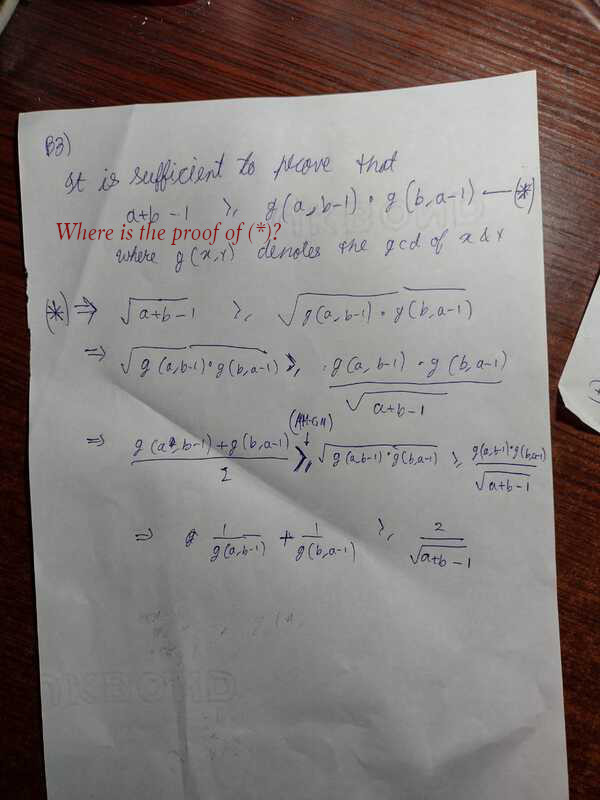 B3)
It is sufficient to prove that
a+b-1 ≥ g(a,b-1) · g(b,a-1) — (*)
Where is the proof of (*)?
where g(x,y) denotes the gcd of x & y
(*) ⇒ √(a+b-1) ≥ √(g(a,b-1) · g(b,a-1))
⇒ √(g(a,b-1) · g(b,a-1)) ≥ (g(a,b-1) · g(b,a-1))/√(a+b-1)
(AM-GM)
⇒ (g(a,b-1) + g(b,a-1))/2 ≥ √(g(a,b-1) · g(b,a-1)) ≥ (g(a,b-1) · g(b,a-1))/√(a+b-1)
⇒ 1/g(a,b-1) + 1/g(b,a-1) ≥ 2/√(a+b-1)